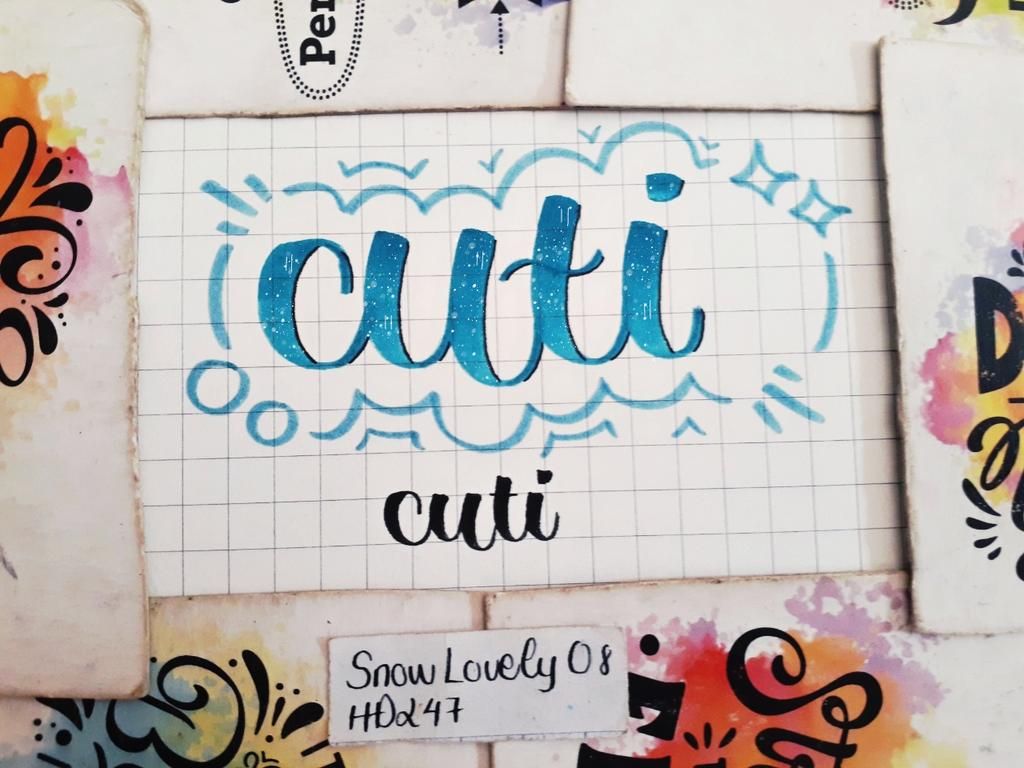 Per
cuti
cuti
Snow Lovely 08
HD247